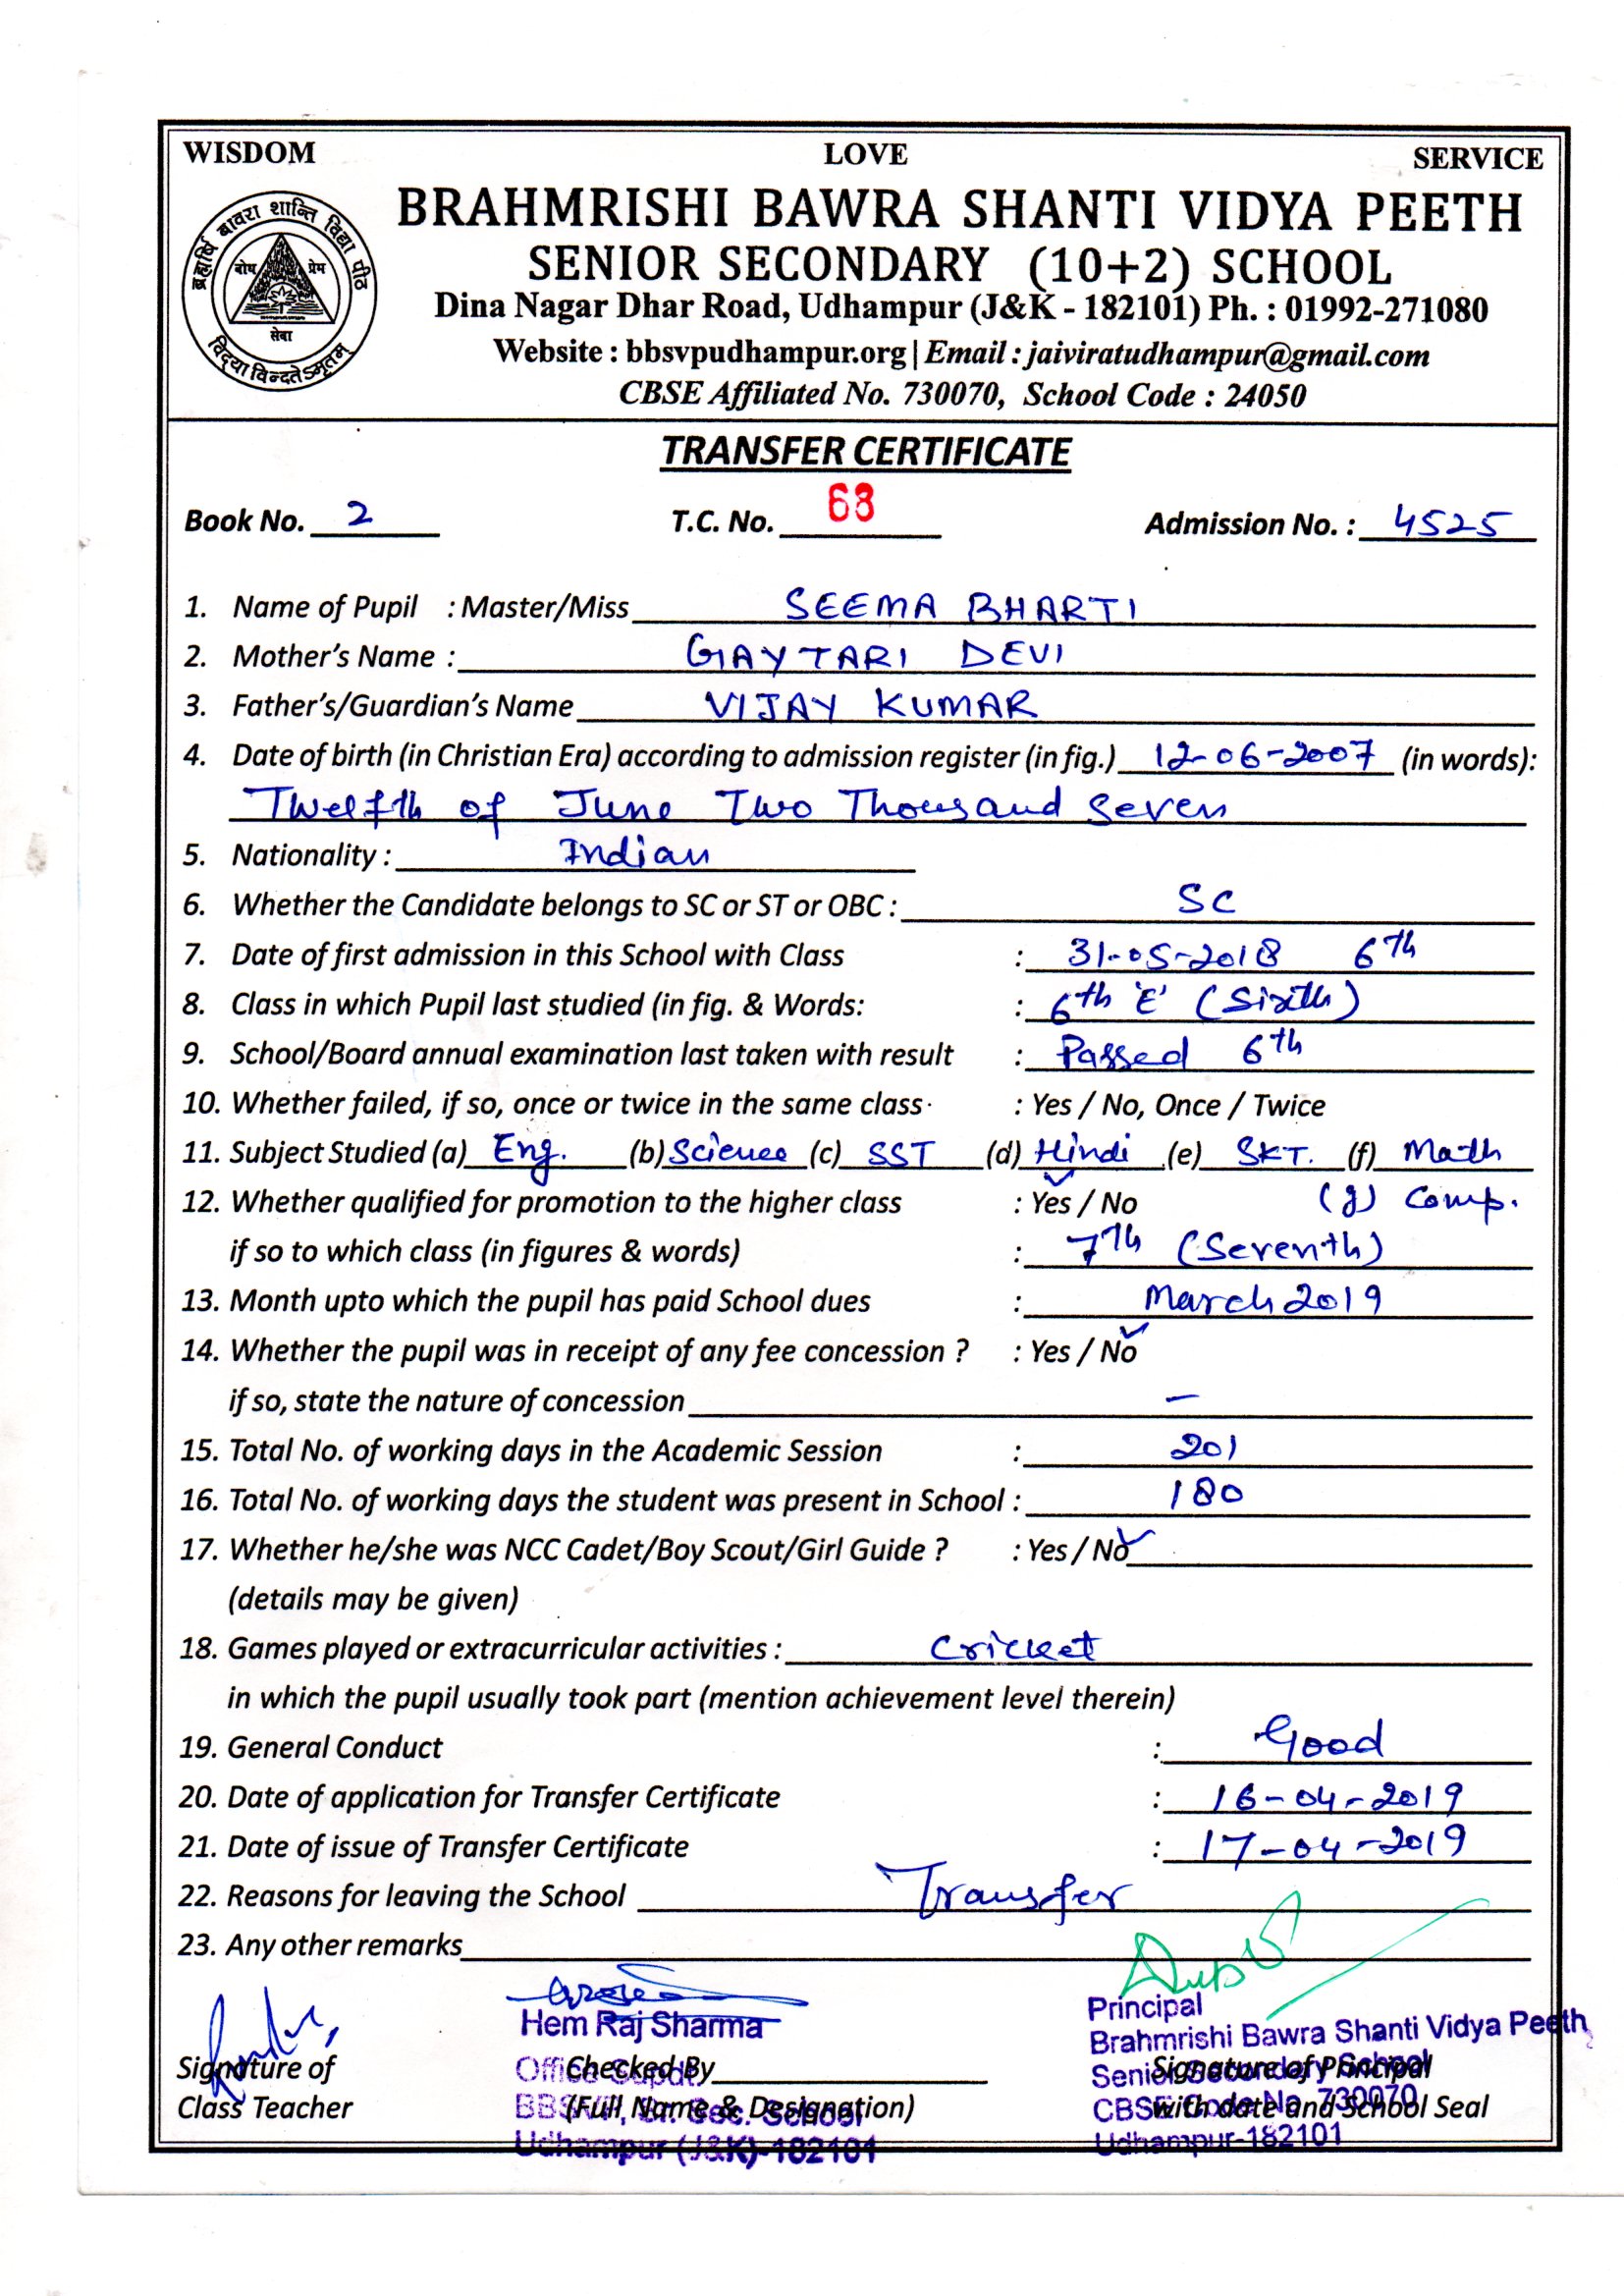 WISDOM LOVE SERVICE
ब्रह्मर्षि बावरा शान्ति विद्या पीठ
बोध प्रेम
सेवा
विद्यया विन्दतेऽमृतम्
BRAHMRISHI BAWRA SHANTI VIDYA PEETH
SENIOR SECONDARY (10+2) SCHOOL
Dina Nagar Dhar Road, Udhampur (J&K - 182101) Ph. : 01992-271080
Website : bbsvpudhampur.org | Email : jaiviratudhampur@gmail.com
CBSE Affiliated No. 730070, School Code : 24050
TRANSFER CERTIFICATE
Book No. 2 T.C. No. 68 Admission No. : 4525
1. Name of Pupil : Master/Miss SEEMA BHARTI
2. Mother's Name : GAYTARI DEVI
3. Father's/Guardian's Name VIJAY KUMAR
4. Date of birth (in Christian Era) according to admission register (in fig.) 12-06-2007 (in words):
Twelfth of June Two Thousand Seven
5. Nationality : Indian
6. Whether the Candidate belongs to SC or ST or OBC : SC
7. Date of first admission in this School with Class : 31-05-2018 6th
8. Class in which Pupil last studied (in fig. & Words: : 6th 'E' (Sixth)
9. School/Board annual examination last taken with result : Passed 6th
10. Whether failed, if so, once or twice in the same class : Yes / No, Once / Twice
11. Subject Studied (a) Eng. (b) Science (c) SST (d) Hindi (e) SKT. (f) Math
12. Whether qualified for promotion to the higher class : Yes / No (g) Comp.
if so to which class (in figures & words) : 7th (Seventh)
13. Month upto which the pupil has paid School dues : March 2019
14. Whether the pupil was in receipt of any fee concession ? : Yes / No
if so, state the nature of concession —
15. Total No. of working days in the Academic Session : 201
16. Total No. of working days the student was present in School : 180
17. Whether he/she was NCC Cadet/Boy Scout/Girl Guide ? : Yes / No
(details may be given)
18. Games played or extracurricular activities : Cricket
in which the pupil usually took part (mention achievement level therein)
19. General Conduct : Good
20. Date of application for Transfer Certificate : 16-04-2019
21. Date of issue of Transfer Certificate : 17-04-2019
22. Reasons for leaving the School Transfer
23. Any other remarks
Hem Raj Sharma
Office Supdt.
BBSVP, Sr. Sec. School
Udhampur (J&K)-182101
Principal
Brahmrishi Bawra Shanti Vidya Peeth
Senior Secondary School
CBSE Code No. 730070
Udhampur-182101
Signature of Checked By Signature of Principal
Class Teacher (Full Name & Designation) with date and School Seal